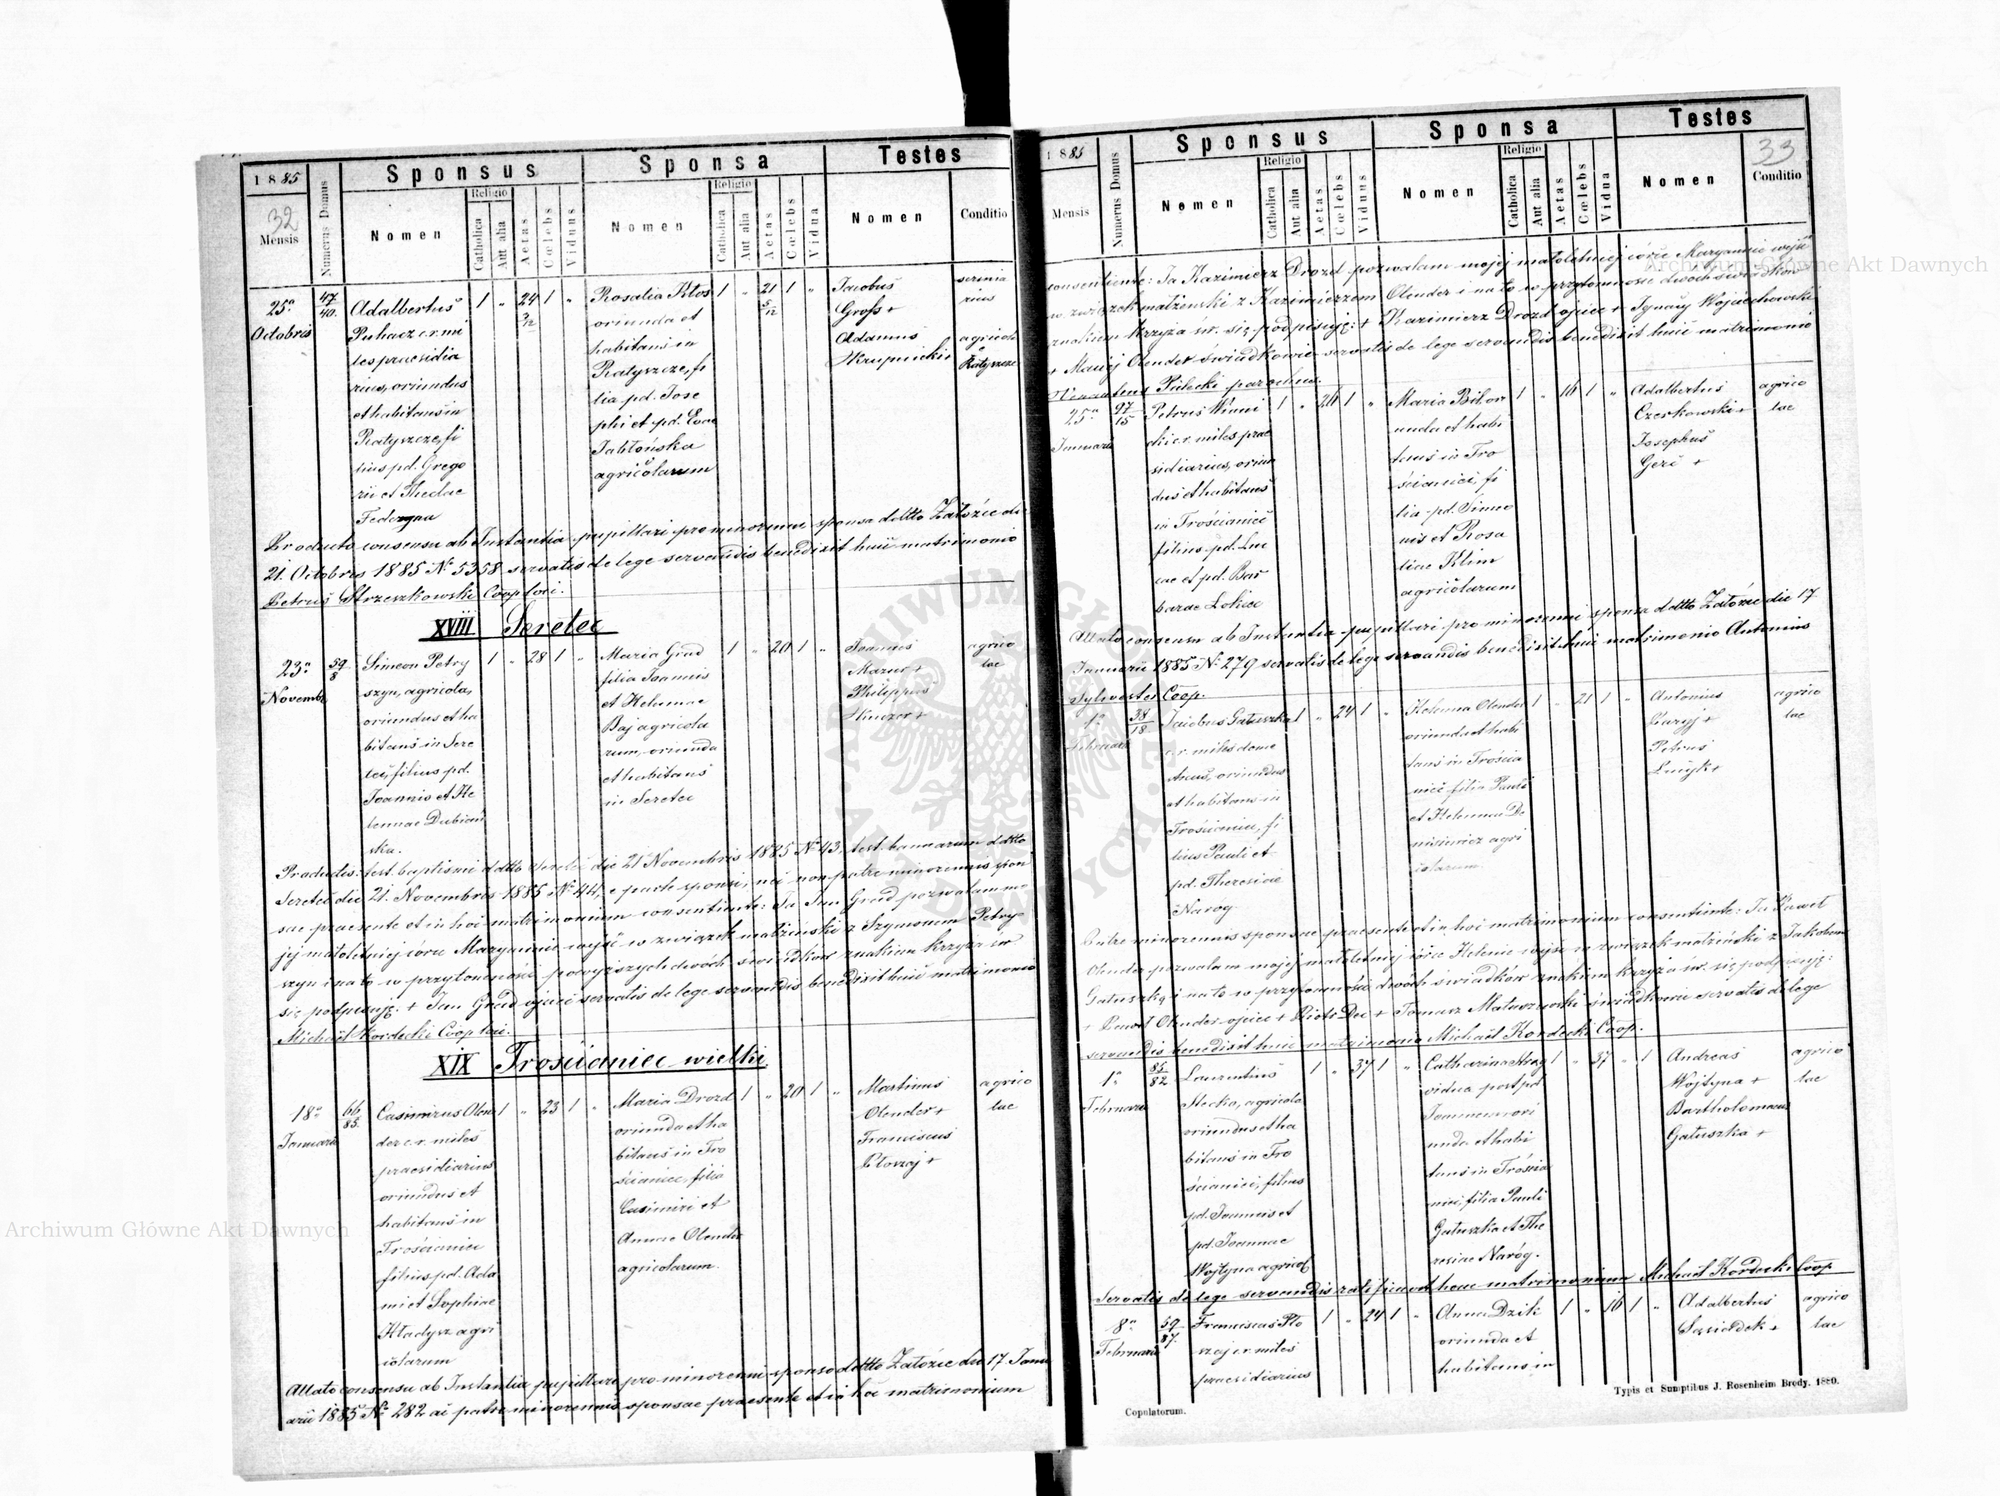 1885
32
Mensis
Numerus Domus
Sponsus
Nomen
Religio
Catholica
Aut alia
Aetas
Cœlebs
Viduus
Sponsa
Nomen
Religio
Catholica
Aut alia
Aetas
Cœlebs
Vidua
Testes
Nomen
Conditio
25a
Octobris
47
40.
Adalbertus
Puhacz c.r. mi
les praesidia
rius, oriundus
et habitans in
Ratyszcze, fi
lius pd. Grego
rii et Theclae
Federyna
1 " 24 3/12 1 "
Rosalia Kłos
oriunda et
habitans in
Ratyszcze, fi
lia pd. Jose
phi et pd. Evae
Jabłońska
agricolarum
1 " 21 5/12 1 "
Jacobus
Groß +
Adamus
Krupnicki
agricola
e
Ratyszcze
Producto consensu ab Instantia pupillari pro minorenni sponsa ddtto Załoźce die
21. Octobris 1885 No 5358 servatis de lege servandis benedixit huic matrimonio
Petrus Strzeszkowski Cooptor.
XVIII Seretec
23a
Novemb.
59
8
Simeon Petry
szyn, agricola,
oriundus et ha
bitans in Sere
tec, filius pd.
Joannis et He
lennae Dubiań
ska.
1 " 28 1 "
Maria Grad
filia Joannis
et Helennae
Baj agricola
rum, oriunda
et habitans
in Seretec
1 " 20 1 "
Joannes
Mazur +
Philippus
agrico
lae
Productis: test. baptismi ddtto Seretec die 21 Novembris 1885 No 43, test. bannorum ddtto
Seretec die 21. Novembris 1885 No 44, e parte sponsi, nec non patre minorennis spon
sae praesente et in hoc matrimonium consentiente: Ja Jan Grad pozwalam mo
jej małoletniej córce Maryannie wejść w związek małżeński z Szymonem Petry
szyn i na to w przytomności powyższych dwóch świadków znakiem krzyża św.
się podpisuję: + Jan Grad ojciec servatis de lege servandis benedixit huic matrimonio
Michaël Kordecki Cooptor.
XIX Trościaniec wielki
18a
Januarii
66
85.
Casimirus Olen
der c.r. miles
praesidiarius
oriundus et
habitans in
Trościaniec
filius pd. Ada
mi et Sophiae
Hładysz agri
colarum
1 " 23 1 "
Maria Drozd
oriunda et ha
bitans in Tro
ścianiec, filia
Casimiri et
Annae Olender
agricolarum.
1 " 20 1 "
Martinus
Olender +
Franciscus
Płoszaj +
agrico
lae
Allato consensu ab Instantia pupillari pro minorenni sponso ddtto Załoźce die 17. Janu
arii 1885 No 282 ac patre minorennis sponsae praesente et in hoc matrimonium
1885
Mensis
Numerus Domus
Sponsus
Nomen
Religio
Catholica
Aut alia
Aetas
Cœlebs
Viduus
Sponsa
Nomen
Religio
Catholica
Aut alia
Aetas
Cœlebs
Vidua
Testes
Nomen
33
Conditio
consentiente: Ja Kazimierz Drozd pozwalam mojej małoletniej córce Maryannie wejść
w związek małżeński z Kazimierzem Olender i na to w przytomności dwóch świadków
znakiem krzyża św. się podpisuję: + Kazimierz Drozd ojciec + Ignacy Wojciechowski
+ Maciej Olender świadkowie servatis de lege servandis benedixit huic matrimonio
Pałecki parochus.
25a
Januarii
97
15
Petrus Winni
cki c.r. miles prae
sidiarius, oriun
dus et habitans
in Trościaniec
filius pd. Lu
cae et pd. Bar
barae Łokiec
1 " 26 1 "
Maria Bil ori
unda et habi
tans in Tro
ścianiec, fi
lia pd. Simeo
nis et Rosa
liae Klim
agricolarum
1 " 16 1 "
Adalbertus
Czerkowski +
Josephus
Gerc +
agrico
lae
Allato consensu ab Instantia pupillari pro minorenni sponsa ddtto Załoźce die 17
Januarii 1885 No 279 servatis de lege servandis benedixit huic matrimonio Antonius
Sylvester Coop.
1a
Februarii
38
18
Jacobus Gałuszka
c.r. miles dome
sticus, oriundus
et habitans in
Trościaniec, fi
lius Pauli et
pd. Theresiae
Naróg.
1 " 24 1 "
Helenna Olender
oriunda et habi
tans in Trościa
niec filia Pauli
et Helenna De
nisiewicz agri
colarum.
1 " 21 1 "
Antonius
Petrus
agrico
lae
Patre minorennis sponsae praesente et in hoc matrimonium consentiente: Ja Paweł
Olender pozwalam mojej małoletniej córce Helenie wejść w związek małżeński z Jakobem
Gałuszką i na to w przytomności dwóch świadków znakiem krzyża św. się podpisuję:
+ Paweł Olender ojciec + Piotr Dec + Tomasz Matuszewski świadkowie servatis de lege
servandis benedixit huic matrimonio Michaël Kordecki Coop.
1a
Februarii
85
82
Laurentius
Stecko, agricola
oriundus et ha
bitans in Tro
ścianiec, filius
pd. Joannis et
pd. Joannae
Wojtyna agricol.
1 " 37 1 "
Catharina
vidua post pd.
Joannem ori
unda et habi
tans in Trościa
niec, filia Pauli
Gałuszka et The
resiae Naróg.
1 " 37 " 1
Andreas
Wojtyna +
Bartholomaeus
Gałuszka +
agrico
lae
Servatis de lege servandis ratificavit hoc matrimonium Michaël Kordecki Coop
8a
Februarii
59
87.
Franciscus Pło
szaj c.r. miles
praesidiarius
1 " 24 1 "
Anna Dzik
oriunda et
habitans in
1 " 16 1 "
Adalbertus
Sąsiadek +
agrico
lae
Copulatorum.
Typis et Sumptibus J. Rosenheim Brody. 1880.
Archiwum Główne Akt Dawnych
Archiwum Główne Akt Dawnych